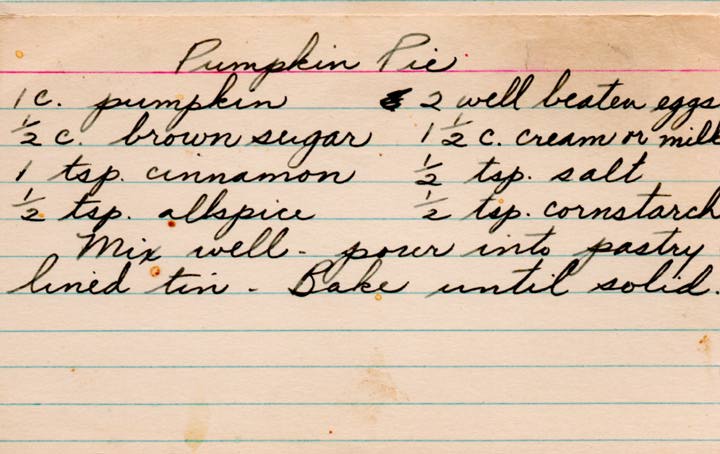 Pumpkin Pie
1 c. pumpkin 2 well beaten eggs
½ c. brown sugar 1 ½ c. cream or milk
1 tsp. cinnamon ½ tsp. salt
½ tsp. allspice ½ tsp. cornstarch
Mix well - pour into pastry
lined tin - Bake until solid.